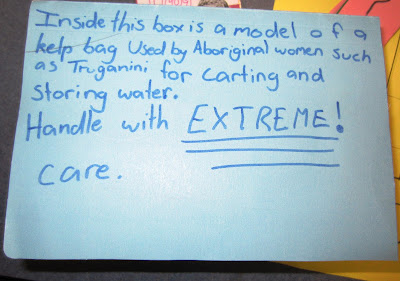 Inside this box is a model of a
kelp bag Used by Aboriginal women such
as Truganini for carting and
storing water.
Handle with EXTREME!
care.